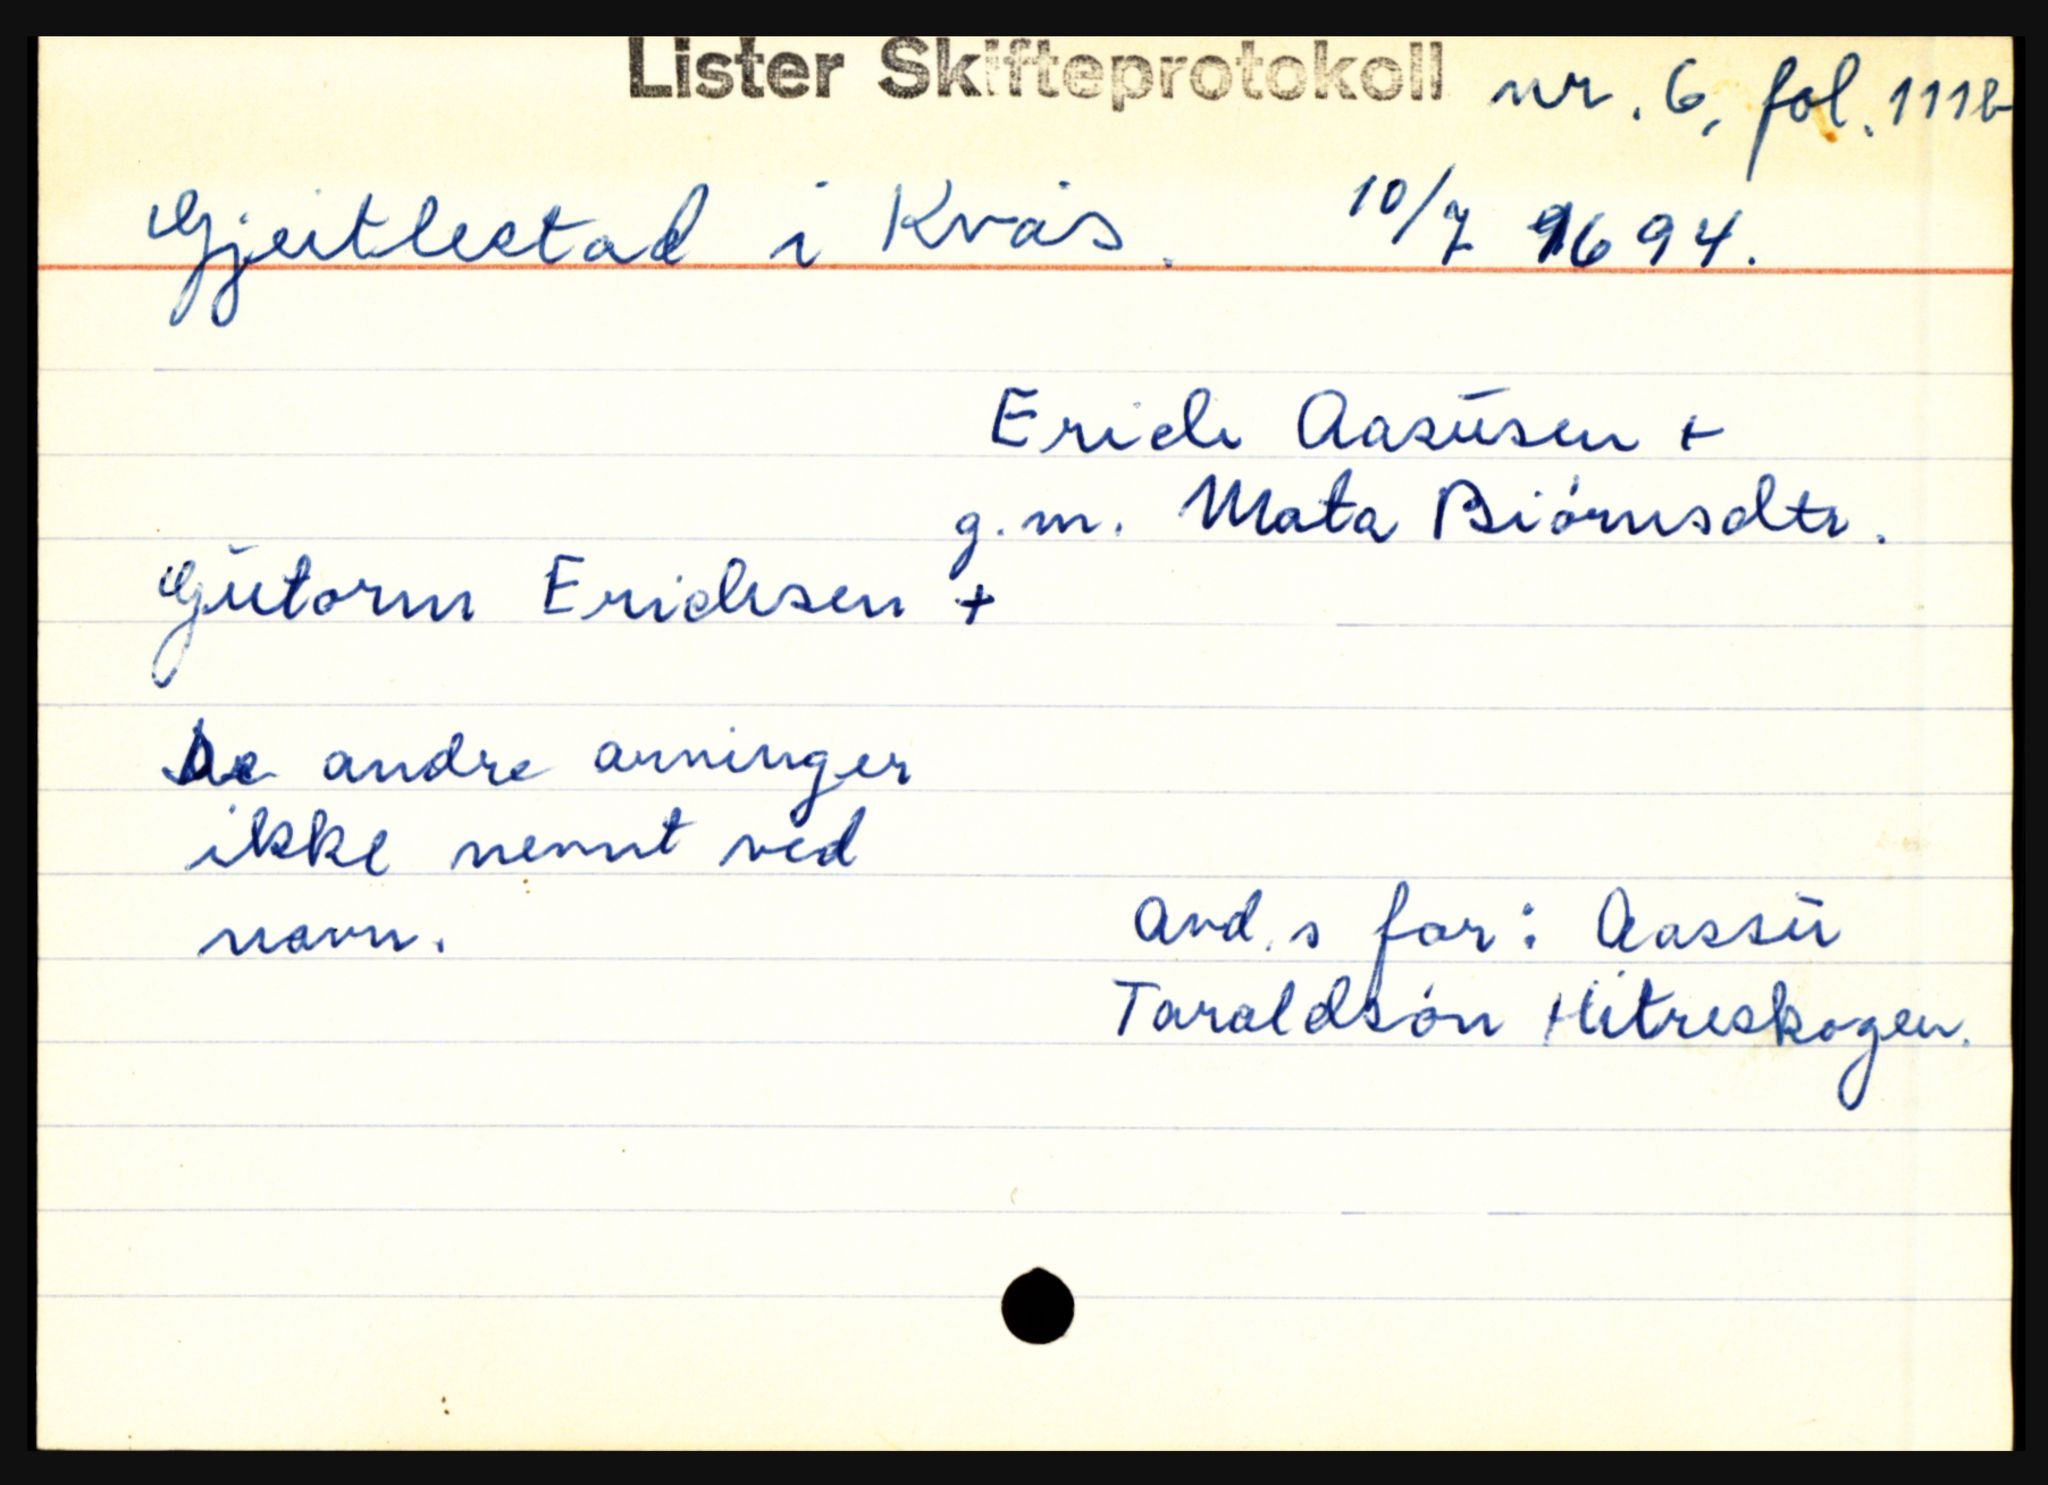 Lister Skifteprotokoll nr. 6, fol. 111b
Gjeitlestad i Kvås. 10/7 1694.
Erich Aasŭsen +
g.m. Mata Biórnsdtr.
Gŭtorm Erichsen +
De andre arvinger
ikke nevnt ved
navn.
Avd.s far: Aassŭ
Taraldsón Hitreskogen.